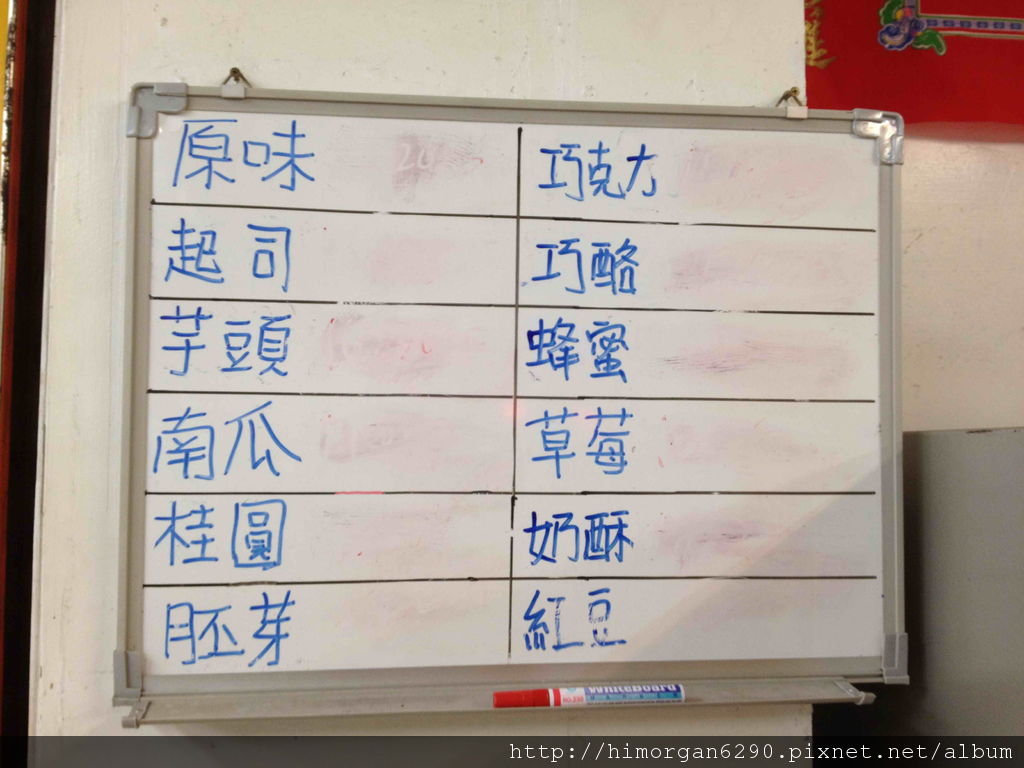 原味
巧克力
起司
巧酪
芋頭
蜂蜜
南瓜
草莓
桂圓
奶酥
胚芽
紅豆
WhiteBoard
http://himorgan6290.pixnet.net/album